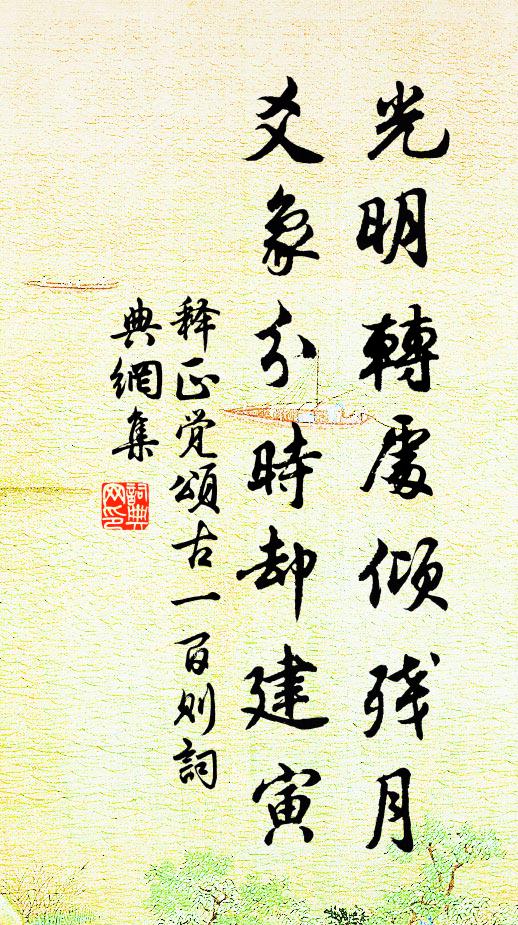 光明轉處傾殘月
爻象分時却建寅
释正觉頌古一百则詞
典網集
詞典
网印